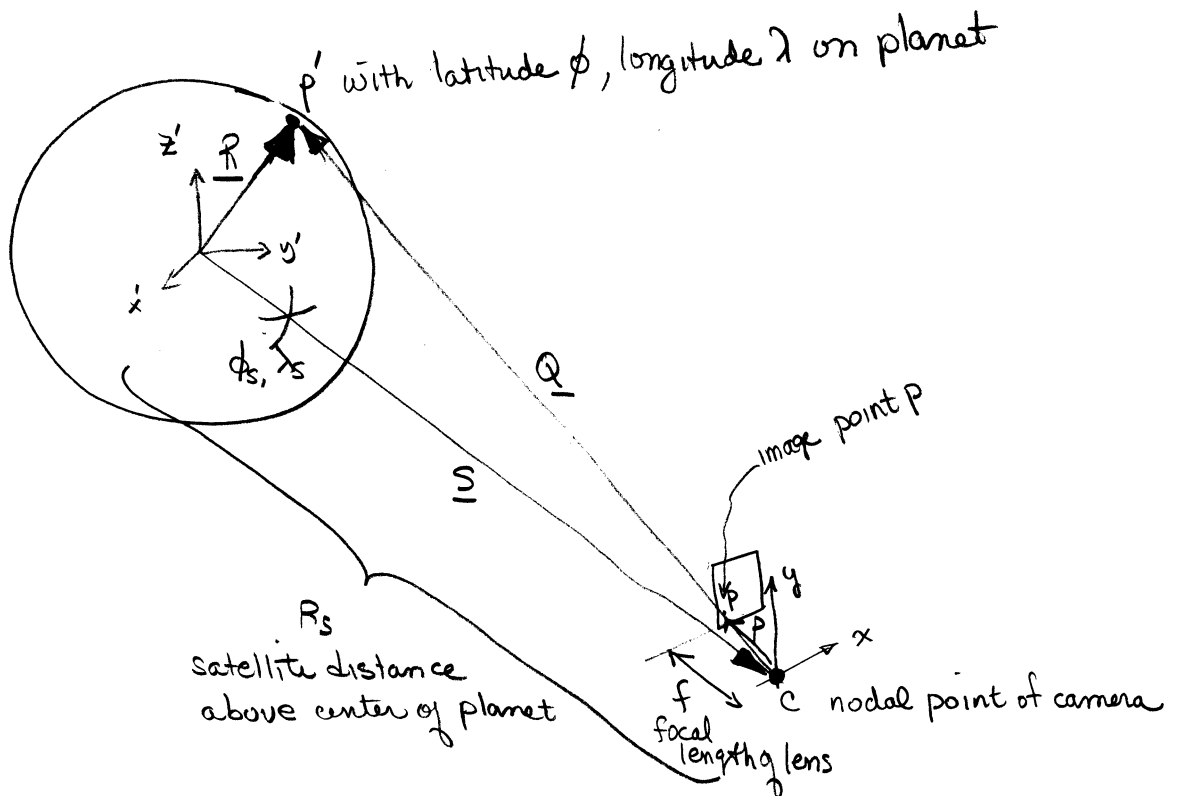 p' with latitude ϕ, longitude λ on planet
z'
R
y'
x'
ϕs, λs
Q
image point p
S
y
p
p
x
Rs
satellite distance
above center of planet
f
focal
length of lens
C nodal point of camera